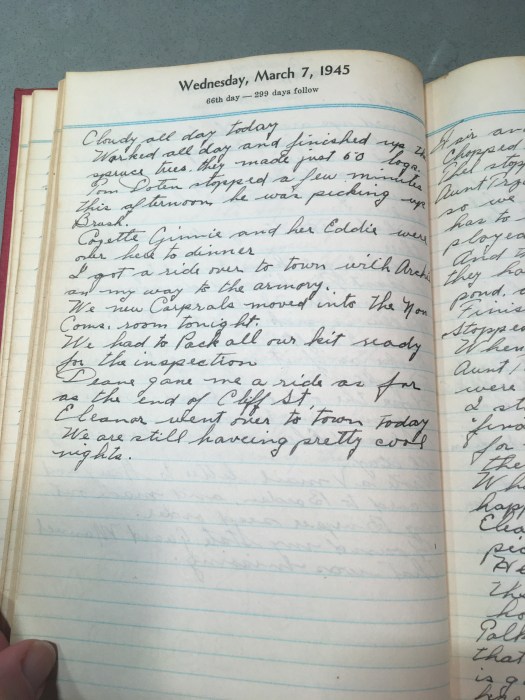 Wednesday, March 7, 1945
66th day — 299 days follow
Cloudy all day today
Worked all day and finished up the
spruce trees. they made just 60 logs.
Tom Doten stopped a few minutes
this afternoon he was picking up
Brush.
Ginnie and her Eddie were
over here to dinner
I got a ride over to town with
on my way to the armory.
We new Corprals moved into the Non
Coms. room tonight.
We had to Pack all our kit ready
for the inspection
Deane gave me a ride as far
as the end of Cliff St.
Eleanor went over to town today
We are still haveing pretty cool
nights.
Chopped
they stop
so we
has to
played
And
they ha
pond.
Finis
Stopped
When
Aunt
were
I st
for
the
Wh
happ
Elea
pic
He
The
ho
Talk
that
is g